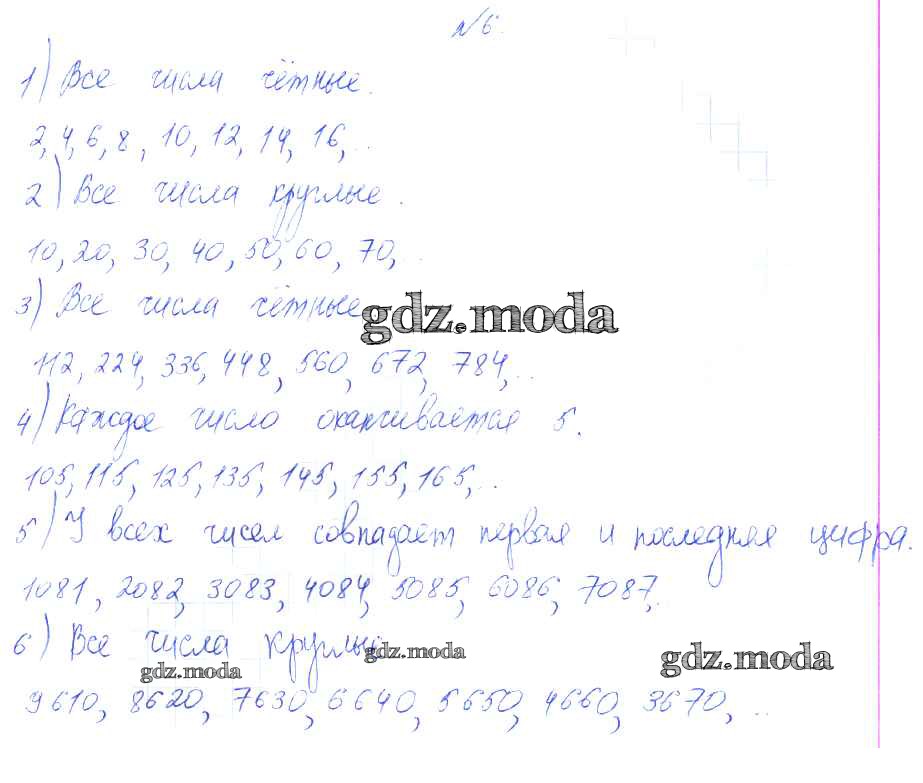 №6.
1) Все числа чётные.
2, 4, 6, 8, 10, 12, 14, 16, ..
2) Все числа круглые.
10, 20, 30, 40, 50, 60, 70, .
3) Все числа чётные
gdz.moda
112, 224, 336, 448, 560, 672, 784, ..
4) Каждое число оканчивается 5.
105, 115, 125, 135, 145, 155, 165, ..
5) У всех чисел совпадает первая и последняя цифра.
1081, 2082, 3083, 4084, 5085, 6086, 7087, ..
6) Все числа круглые
gdz.moda
gdz.moda
gdz.moda
9610, 8620, 7630, 6640, 5650, 4660, 3670, ..